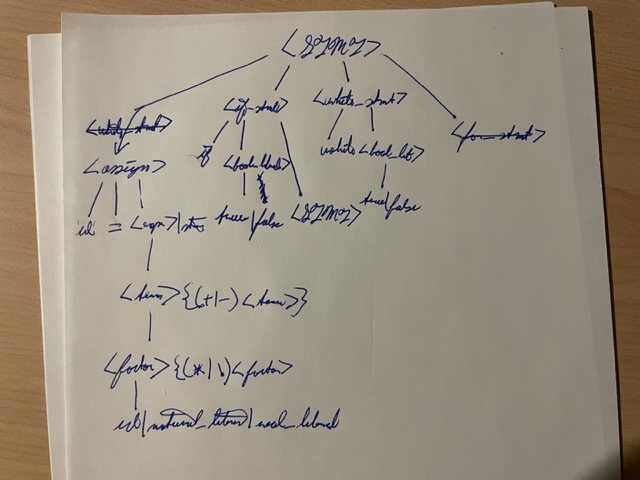 <STMT>
<if_stmt> <while_stmt>
<for_stmt>
<assign> if <bool_lit> while <bool_lit>
id = <expr> | true | false <STMT> true | false
<term> {(+|-) <term>}
<factor> {(*|\) <factor>
id | natural_literal | real_literal